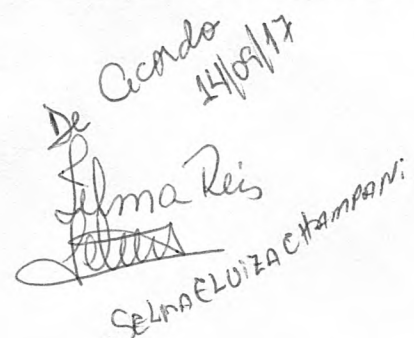 De Acordo
14/09/17
Selma Reis
SELMA ELUIZA CHAMPANI